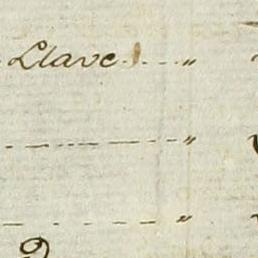 Llave ........ "
------------ "
------------ "